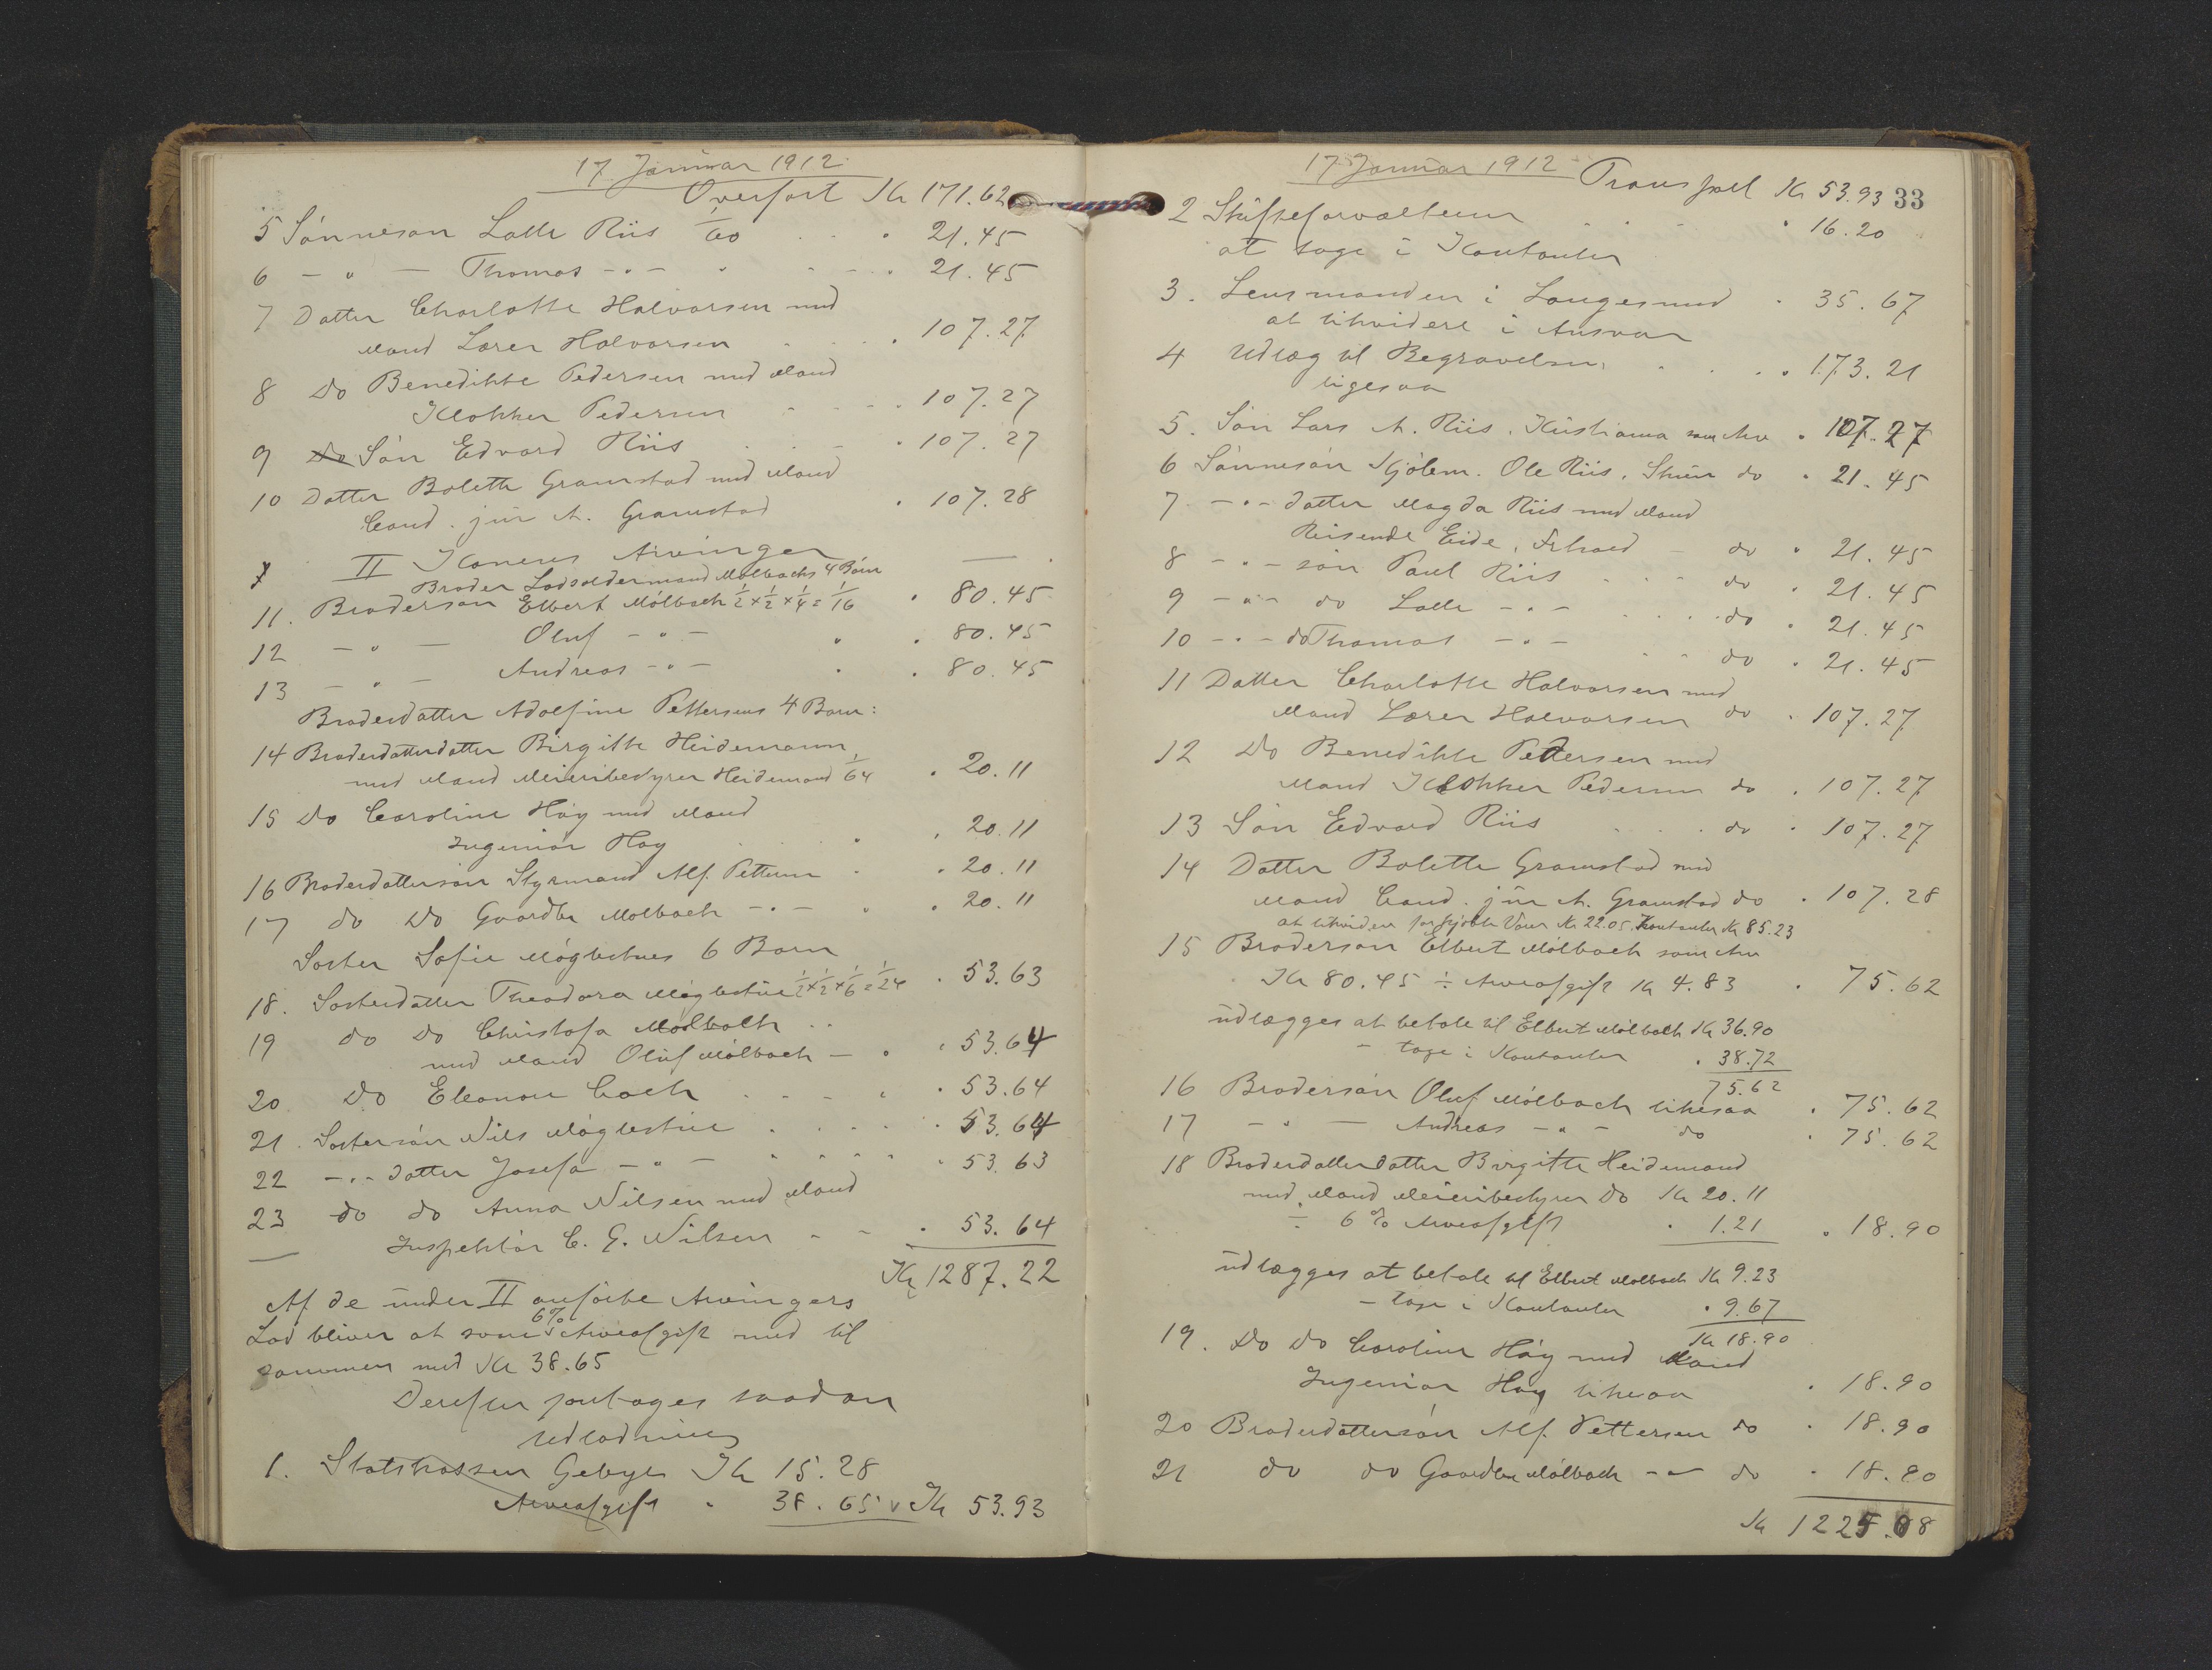 17 Januar 1912
Overført Kr 171.62
5 Sønnesøn Lalle Riis 1/60 " 21.45
6 - " - Thomas - " - " 21.45
7 Datter Charlotte Halvorsen med
Mand Lærer Halvorsen " 107.27
8 Do Benedikte Pedersen med Mand
Klokker Pedersen " 107.27
9 Do Søn Edvard Riis " 107.27
10 Datter Bolette Gramstad med Mand
Cand. jur A. Gramstad " 107.28
II Konens Arvinger
Broder Lodsoldermand Mølbachs 4 Børn
11. Brodersøn Elbert Mølbach 1/2 x 1/2 x 1/4 = 1/16 " 80.45
12 - " - Oluf - " - " " 80.45
13 - " - Andreas - " - " " 80.45
Broderdatter Adolfine Pettersens 4 Børn:
14 Broderdatterdatter Birgitte Heidemann,
med Mand Meieribestyrer Heidemand 1/64 " 20.11
15 Do Caroline Høy med Mand
Ingeniør Høy " " 20.11
16 Broderdattersøn Styrmand Alf. Pettersen " " 20.11
17 do Do Gaardbr Mølbach - " - " " 20.11
Søster Sofie Møglestues 6 Børn
18. Søsterdatter Theodora Møglestue 1/2 x 1/2 x 1/6 = 1/24 " 53.63
19 do Do Christofa Mølbach
med Mand Oluf Mølbach - " " 53.64
20 Do Eleonore Coch " " 53.64
21. Søstersøn Nils Møglestue " 53.64
22 - " - datter Josefa - " - " 53.63
23 do do Anna Nilsen med Mand
Inspektør C. G. Nilsen " 53.64
Kr 1287.22
Af de under II anførte Arvingers
Lod bliver at svare 6% Arveafgift med til
sammen med Kr 38.65
Derefter foretages saadan
Udlodning
1. Statskassen Gebyr Kr 15.28
Arveafgift " 38.65 Kr 53.93
17 Januar 1912 Transport Kr 53.93 33
2 Skifteforvalteren " 16.20
at tage i Kontanter
3. Lensmanden i Langesund " 35.67
at likvidere i Ansvar
4 Udlæg til Begravelsen " 173.21
ligesaa
5. Søn Lars A. Riis, Kristiania som Arv " 107.27
6 Sønnesøn Gjølem. Ole Riis, Skien do " 21.45
7 - " - datter Magda Riis med Mand
Reisende Eide, do " 21.45
8 - " - søn Paul Riis do " 21.45
9 - " - do Lalle - " - do " 21.45
10 - " - do Thomas - " - do " 21.45
11 Datter Charlotte Halvorsen med
Mand Lærer Halvorsen do " 107.27
12 Do Benedikte Pedersen med
Mand Klokker Pedersen do " 107.27
13 Søn Edvard Riis do " 107.27
14 Datter Bolette Gramstad med
Mand Cand. jur A. Gramstad do " 107.28
at likvidere for kjøbte Varer Kr 22.05 Kontanter Kr 85.23
15 Brodersøn Elbert Mølbach som Arv
Kr 80.45 ÷ Arveafgift Kr 4.83 " 75.62
udlægges at betale til Elbert Mølbach Kr 36.90
- tage i Kontanter " 38.72
75.62
16 Brodersøn Oluf Mølbach likesaa " 75.62
17 - " - Andreas - " - do " 75.62
18 Broderdatterdatter Birgitte Heidemand
med Mand Meieribestyrer Do Kr 20.11
÷ 6% Arveafgift " 1.21 " 18.90
udlægges at betale til Elbert Mølbach Kr 9.23
- tage i Kontanter " 9.67
Kr 18.90
19. Do Do Caroline Høy med Mand
Ingeniør Høy likesaa " 18.90
20 Broderdattersøn Alf. Pettersen do " 18.90
21 do do Gaardbr Mølbach - " - do " 18.90
Kr